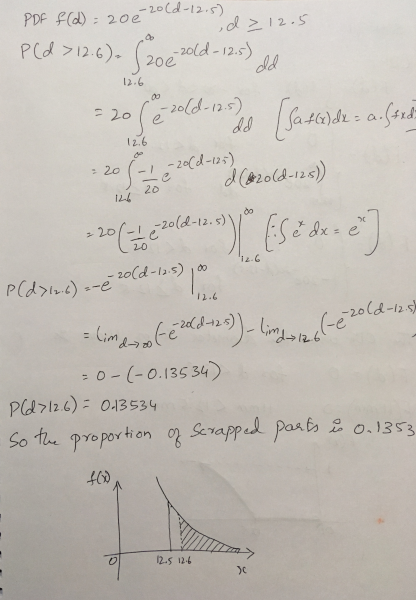 PDF f(d) = 20e^{-20(d-12.5)}, d ≥ 12.5
P(d > 12.6) = ∫_{12.6}^{∞} 20e^{-20(d-12.5)} dd
= 20 ∫_{12.6}^{∞} e^{-20(d-12.5)} dd [∫a f(x) dx = a·∫f(x)d
= 20 ∫_{12.6}^{∞} -1/20 e^{-20(d-12.5)} d(-20(d-12.5))
= 20 (-1/20 e^{-20(d-12.5)}) |_{12.6}^{∞} [∵ ∫e^x dx = e^x]
P(d>12.6) = -e^{-20(d-12.5)} |_{12.6}^{∞}
= lim_{d→∞} (-e^{-20(d-12.5)}) - lim_{d→12.6} (-e^{-20(d-12.5)
= 0 - (-0.13534)
P(d>12.6) = 0.13534
So the proportion of scrapped parts is 0.1353
f(x)
0 12.5 12.6
x